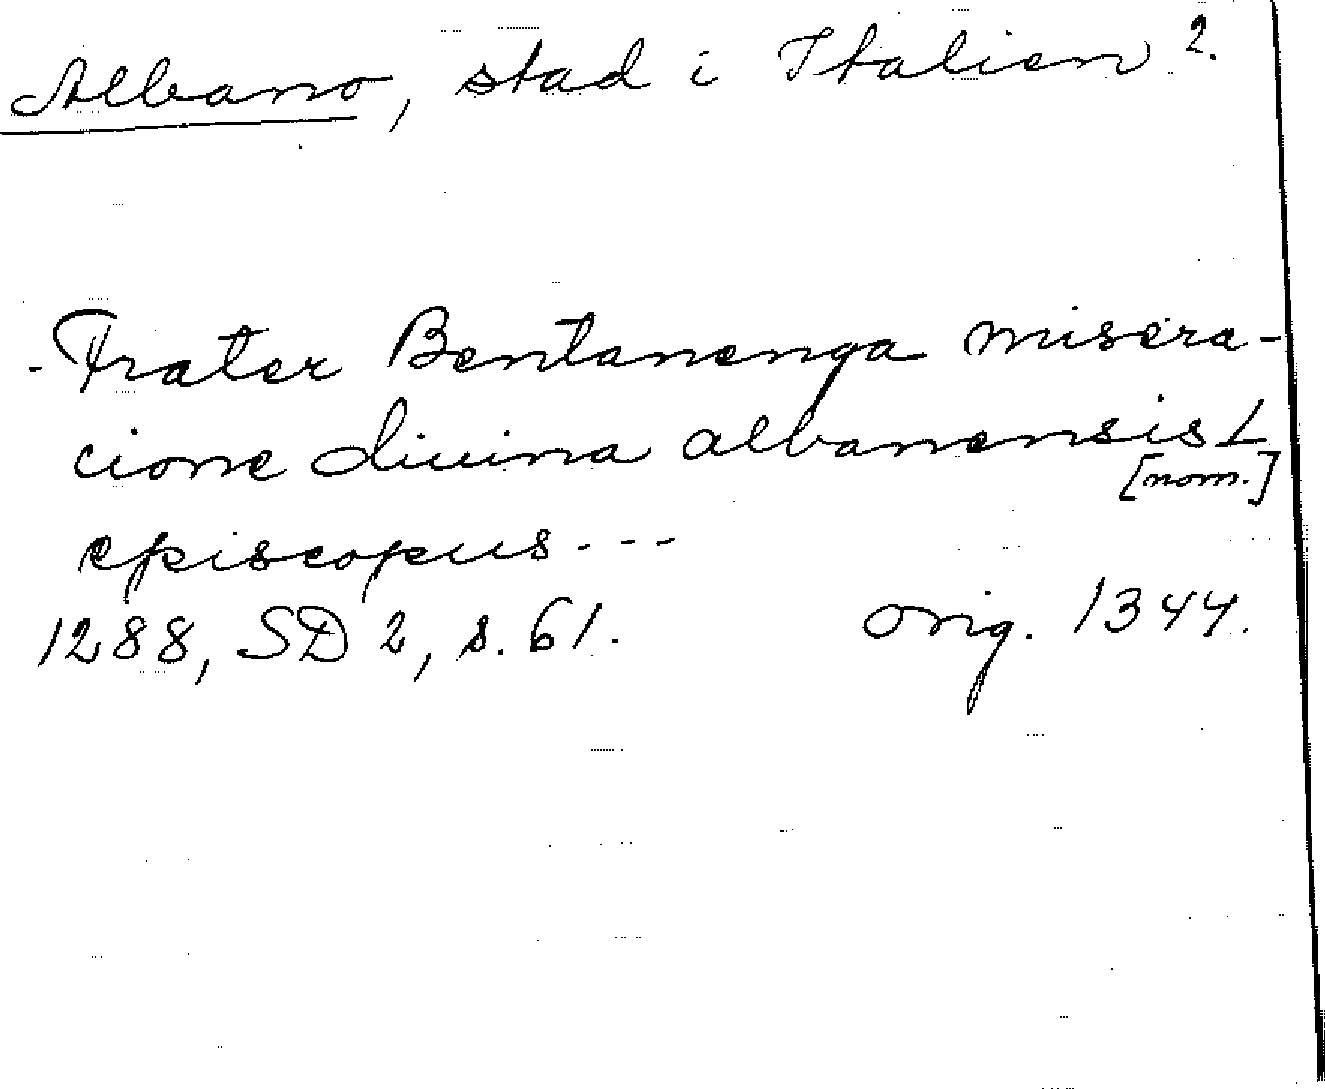 Albano, stad i Italien 2.
- Frater Bentanenga misera-
cione diuina albanensis L
[nom.]
episcopus - - -
1288, SD 2, s. 61. orig. 1344.